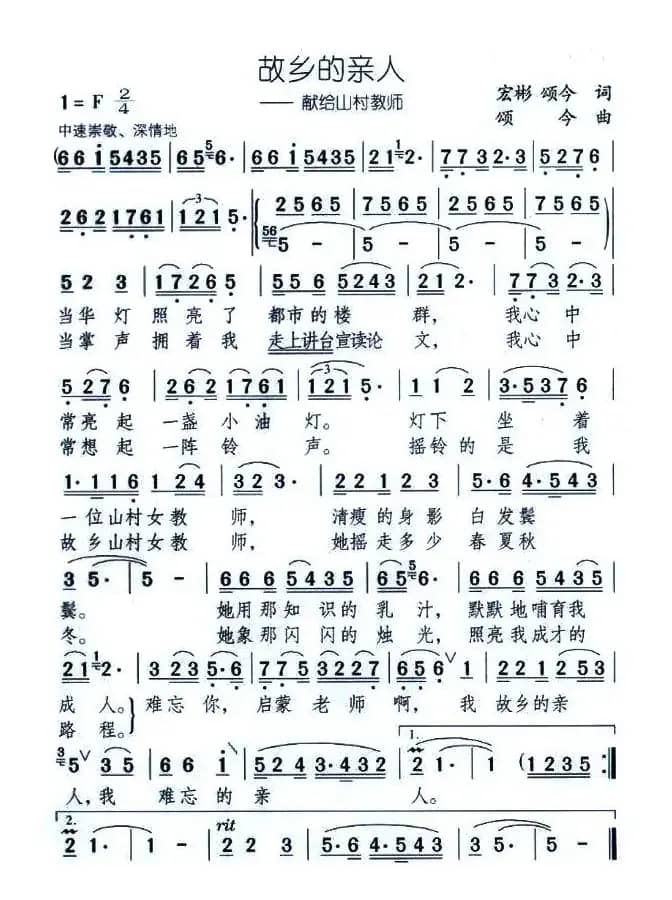 故乡的亲人
1 = F 2/4 —— 献给山村教师 宏彬 颂今 词
中速崇敬、深情地 颂 今 曲
(6 6 i 5435 | 6 65 5 6· | 6 6 i 5435 | 2 21 1 2· | 7 73 2·3 | 5 27 6 |
262 1761 | 3 121 5· | 2565 7565 | 7565 7565 )
56 5 - | 5 - | 5 - | 5 -
5 2 3 | 1726 5 | 5 5 6 5243 | 2 1 2· | 7 7 3 2·3 |
当华 灯 照亮了 都市的楼 群, 我心中
当掌 声 拥着我 走上讲台宣读论 文, 我心中
5 27 6 | 262 1761 | 3 121 5· | 1 1 2 | 3·537 6 |
常亮 起 一盏 小油 灯。 灯下 坐 着
常想 起 一阵 铃 声。 摇铃的 是 我
1·116 | 2 1 2 | 3 2 3· | 2 2 1 2 3 | 5·6 4·543 |
一位山村女教 师, 清瘦的身影 白发鬓
故乡山村女教 师, 她摇走多少 春夏秋
3 5· | 5 - | 6 6 6 5435 | 6 65 5 6· | 6 6 6 5435 |
鬓。 她用那知识的 乳 汁, 默默地哺育我
冬。 她象那闪闪的 烛 光, 照亮我成才的
2 21 1 2· | 3 23 5·6 | 7 75 3227 | 6 5 6 ∨ 1 | 2 2 1 2535 |
成 人。 难忘你, 启蒙 老师 啊, 我 故乡的亲
路 程。
1.
3 5 ∨ 3 5 | 6 6 i | 5243 3·432 | 2 1· | 1 (1235 :|
人, 我 难忘的 亲 人。
2. rit
2 1· | 1 - | 2 2 2 3 | 5·6 4·543 | 3 5· | 5 - ‖